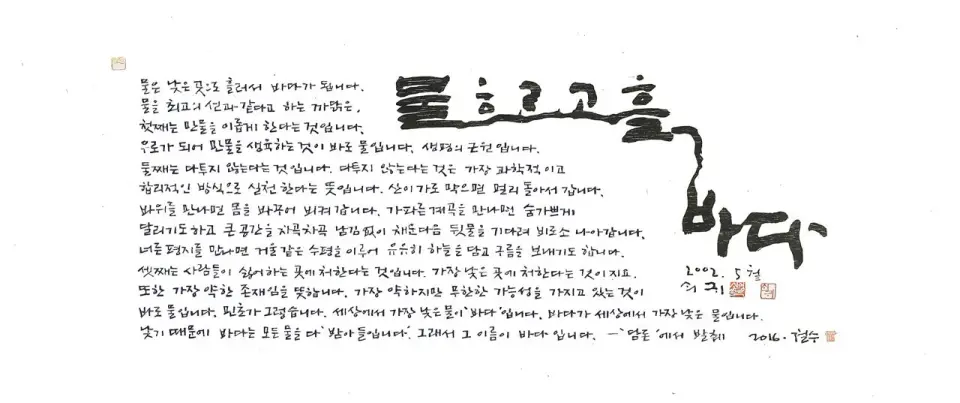 물흐르고흘
바다
2002. 5월
쇠귀
물은 낮은 곳으로 흘러서 바다가 됩니다.
물을 최고의 선과 같다고 하는 까닭은,
첫째는 만물을 이롭게 한다는 것입니다.
우로가 되어 만물을 생육하는 것이 바로 물입니다. 생명의 근원입니다.
둘째는 다투지 않는다는 것입니다. 다투지 않는다는 것은 가장 과학적이고
합리적인 방식으로 실천한다는 뜻입니다. 산이 가로 막으면 멀리 돌아서 갑니다.
바위를 만나면 몸을 바꾸어 비켜 갑니다. 가파른 계곡을 만나면 숨가쁘게
달리기도 하고 큰 공간을 차곡차곡 남김없이 채운 다음 뒷물을 기다려 비로소 나아갑니다.
너른 평지를 만나면 거울 같은 수평을 이루어 유유히 하늘을 담고 구름을 보내기도 합니다.
셋째는 사람들이 싫어하는 곳에 처한다는 것입니다. 가장 낮은 곳에 처한다는 것이지요.
또한 가장 약한 존재임을 뜻합니다. 가장 약하지만 무한한 가능성을 가지고 있는 것이
바로 물입니다. 민초가 그렇습니다. 세상에서 가장 낮은 물이 '바다'입니다. 바다가 세상에서 가장 낮은 물입니다.
낮기 때문에 바다는 모든 물을 다 '받아들입니다'. 그래서 그 이름이 바다입니다. —'담론'에서 발췌 2016. 철수